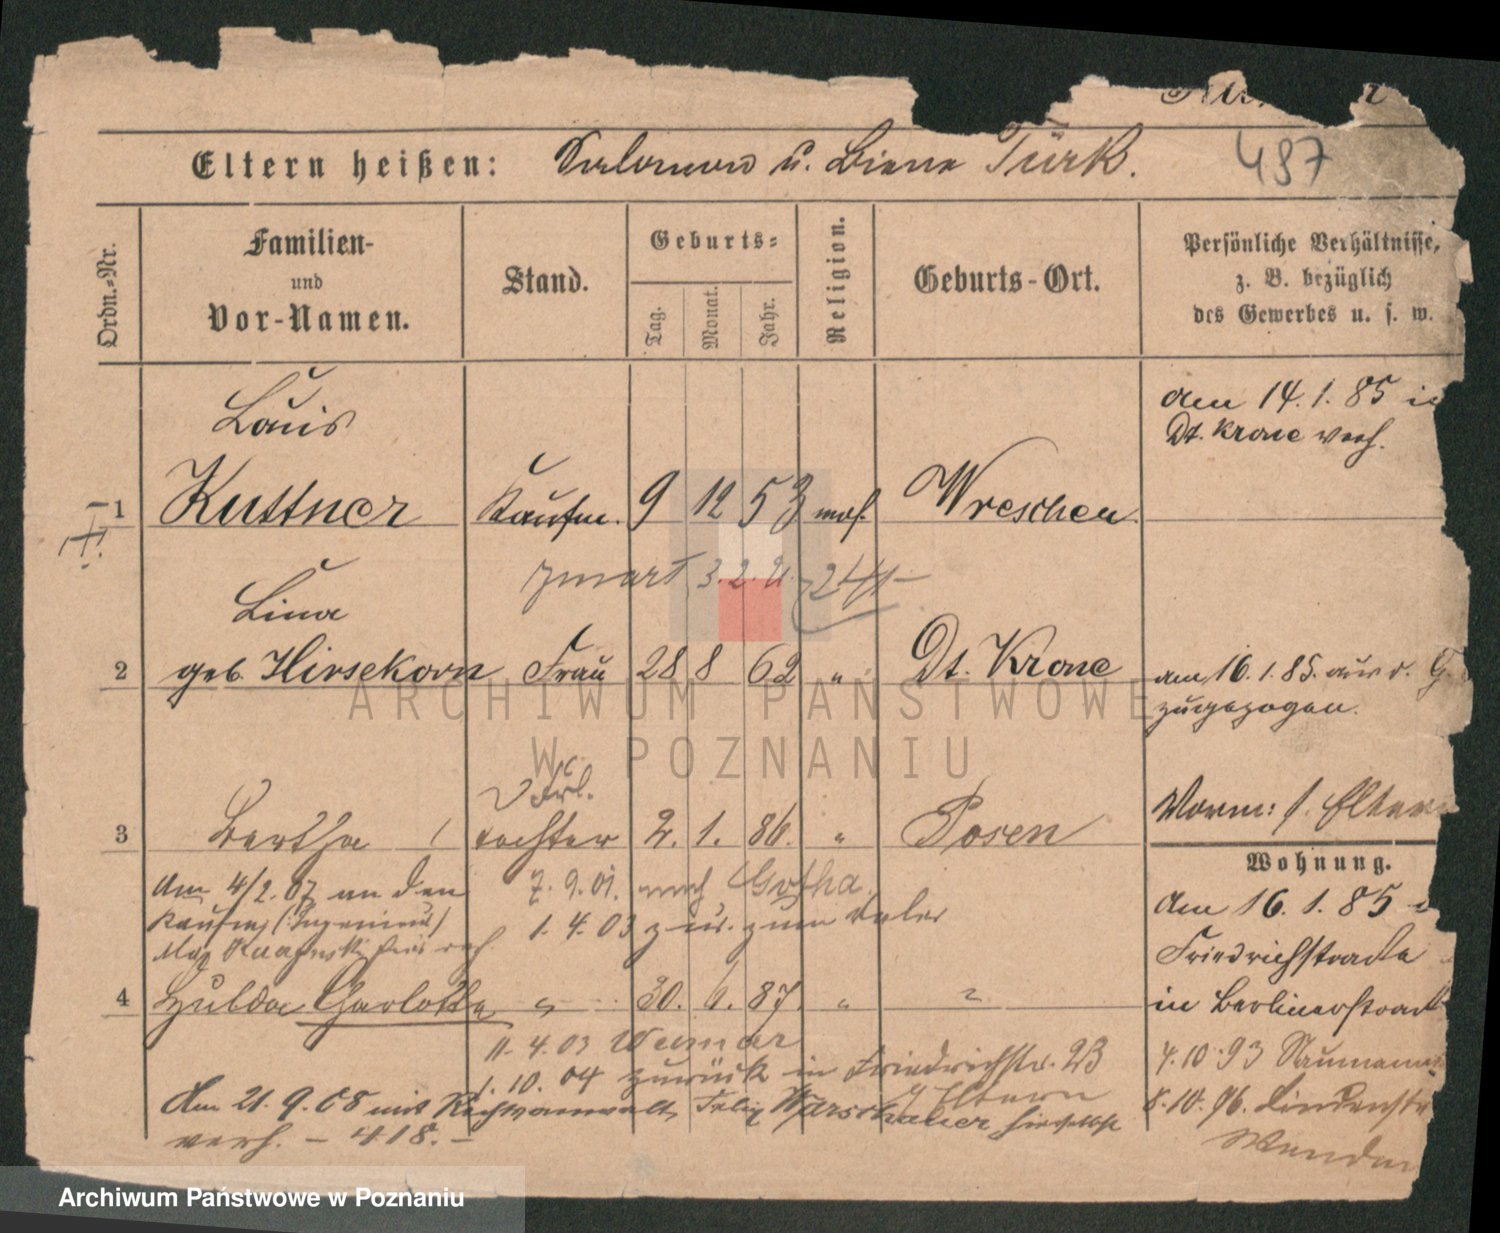 497
Eltern heißen: Salomon u. Biene Türk.
Ordn.=Nr.
Familien-
und
Vor-Namen.
Stand.
Geburts=
Tag.
Monat.
Jahr.
Religion.
Geburts-Ort.
Persönliche Verhältnisse,
z. B. bezüglich
des Gewerbes u. s. w.
Louis
am 14. 1. 85 in
Dt. Krone verh.
1 Kuttner Kaufm. 9 12 53 mos. Wreschen
3. 2. 21.
Lina
2 geb. Hirsekorn Frau 28 8 62 " Dt. Krone
am 16. 1. 85. aus
zugezogen.
3 Bertha Tochter 2. 1. 86. " Posen
Vorm: s. Eltern
Wohnung.
Am 4/2. 07 an den
Kaufm. (Ingenieur)
7. 9. 01. nach Gotha.
1. 4. 03 zur. zum
Am 16. 1. 85
Friedrichstraße
in Berlinerstraße
4 Hulda Charlotte " 30. 6. 87. " "
11. 4. 03 Weimar
1. 10. 04 zurück in Friedrichstr. 23
z Eltern
4. 10. 93 Naumann
8. 10. 96. Lindenstr
Am 21. 9. 08 mit Rechtsanwalt Felix Warschauer hierselbst
verh. – 418. –
ARCHIWUM PAŃSTWOWE
W POZNANIU
Archiwum Państwowe w Poznaniu